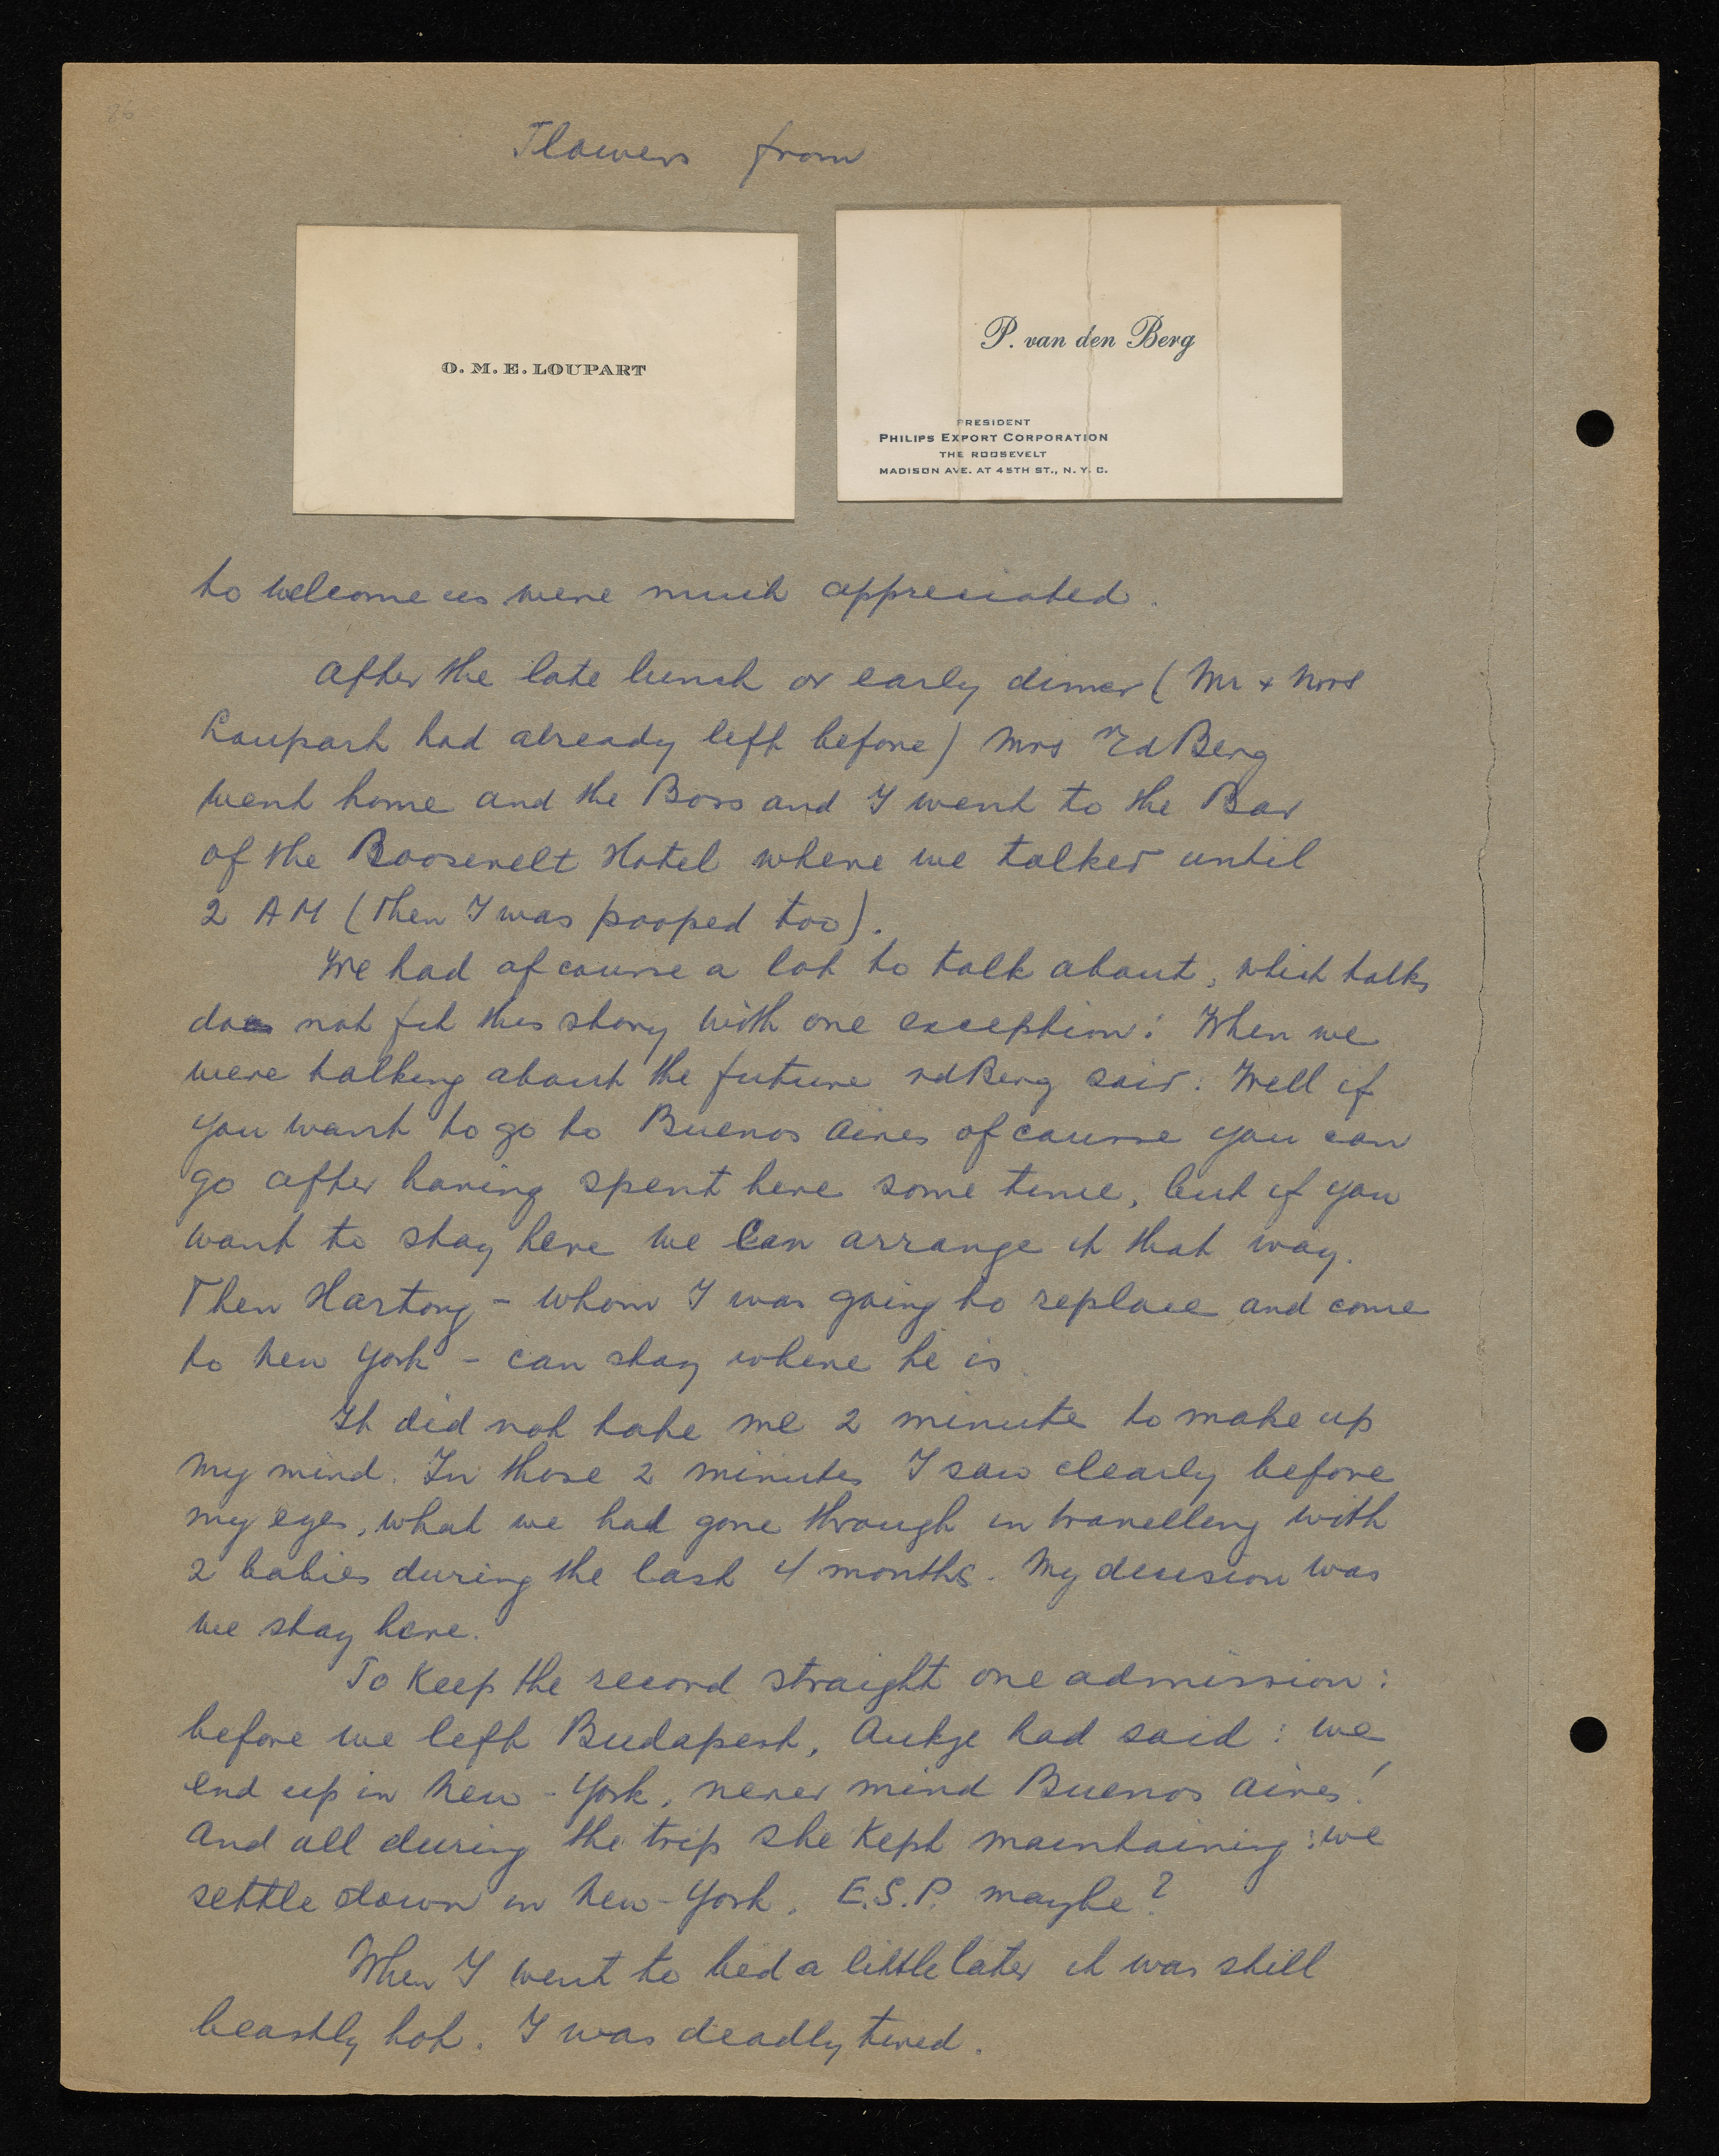 76
Flowers from
O. M. E. LOUPART
P. van den Berg
PRESIDENT
PHILIPS EXPORT CORPORATION
THE ROOSEVELT
MADISON AVE. AT 45TH ST., N. Y. C.
to welcome us were much appreciated.
After the late lunch or early dinner (Mr + Mrs
Loupart had already left before) Mrs vdBerg
went home and the Boss and I went to the Bar
of the Roosevelt Hotel where we talked until
2 AM (then I was pooped too).
We had of course a lot to talk about, which talks
does not fit this story with one exception: When we
were talking about the future vdBerg said: Well if
you want to go to Buenos Aires of course you can
go after having spent here some time, but if you
want to stay here we can arrange it that way.
Then Hartong - whom I was going to replace and come
to New York - can stay where he is
It did not take me 2 minutes to make up
my mind. In those 2 minutes I saw clearly before
my eyes, what we had gone through in travelling with
2 babies during the last 4 months. My decision was
we stay here.
To keep the record straight one admission:
before we left Budapest, Aukje had said: we
end up in New-York, never mind Buenos Aires!
And all during the trip she kept maintaining: we
settle down in New-York. E.S.P. maybe?
When I went to bed a little later it was still
beastly hot. I was deadly tired.